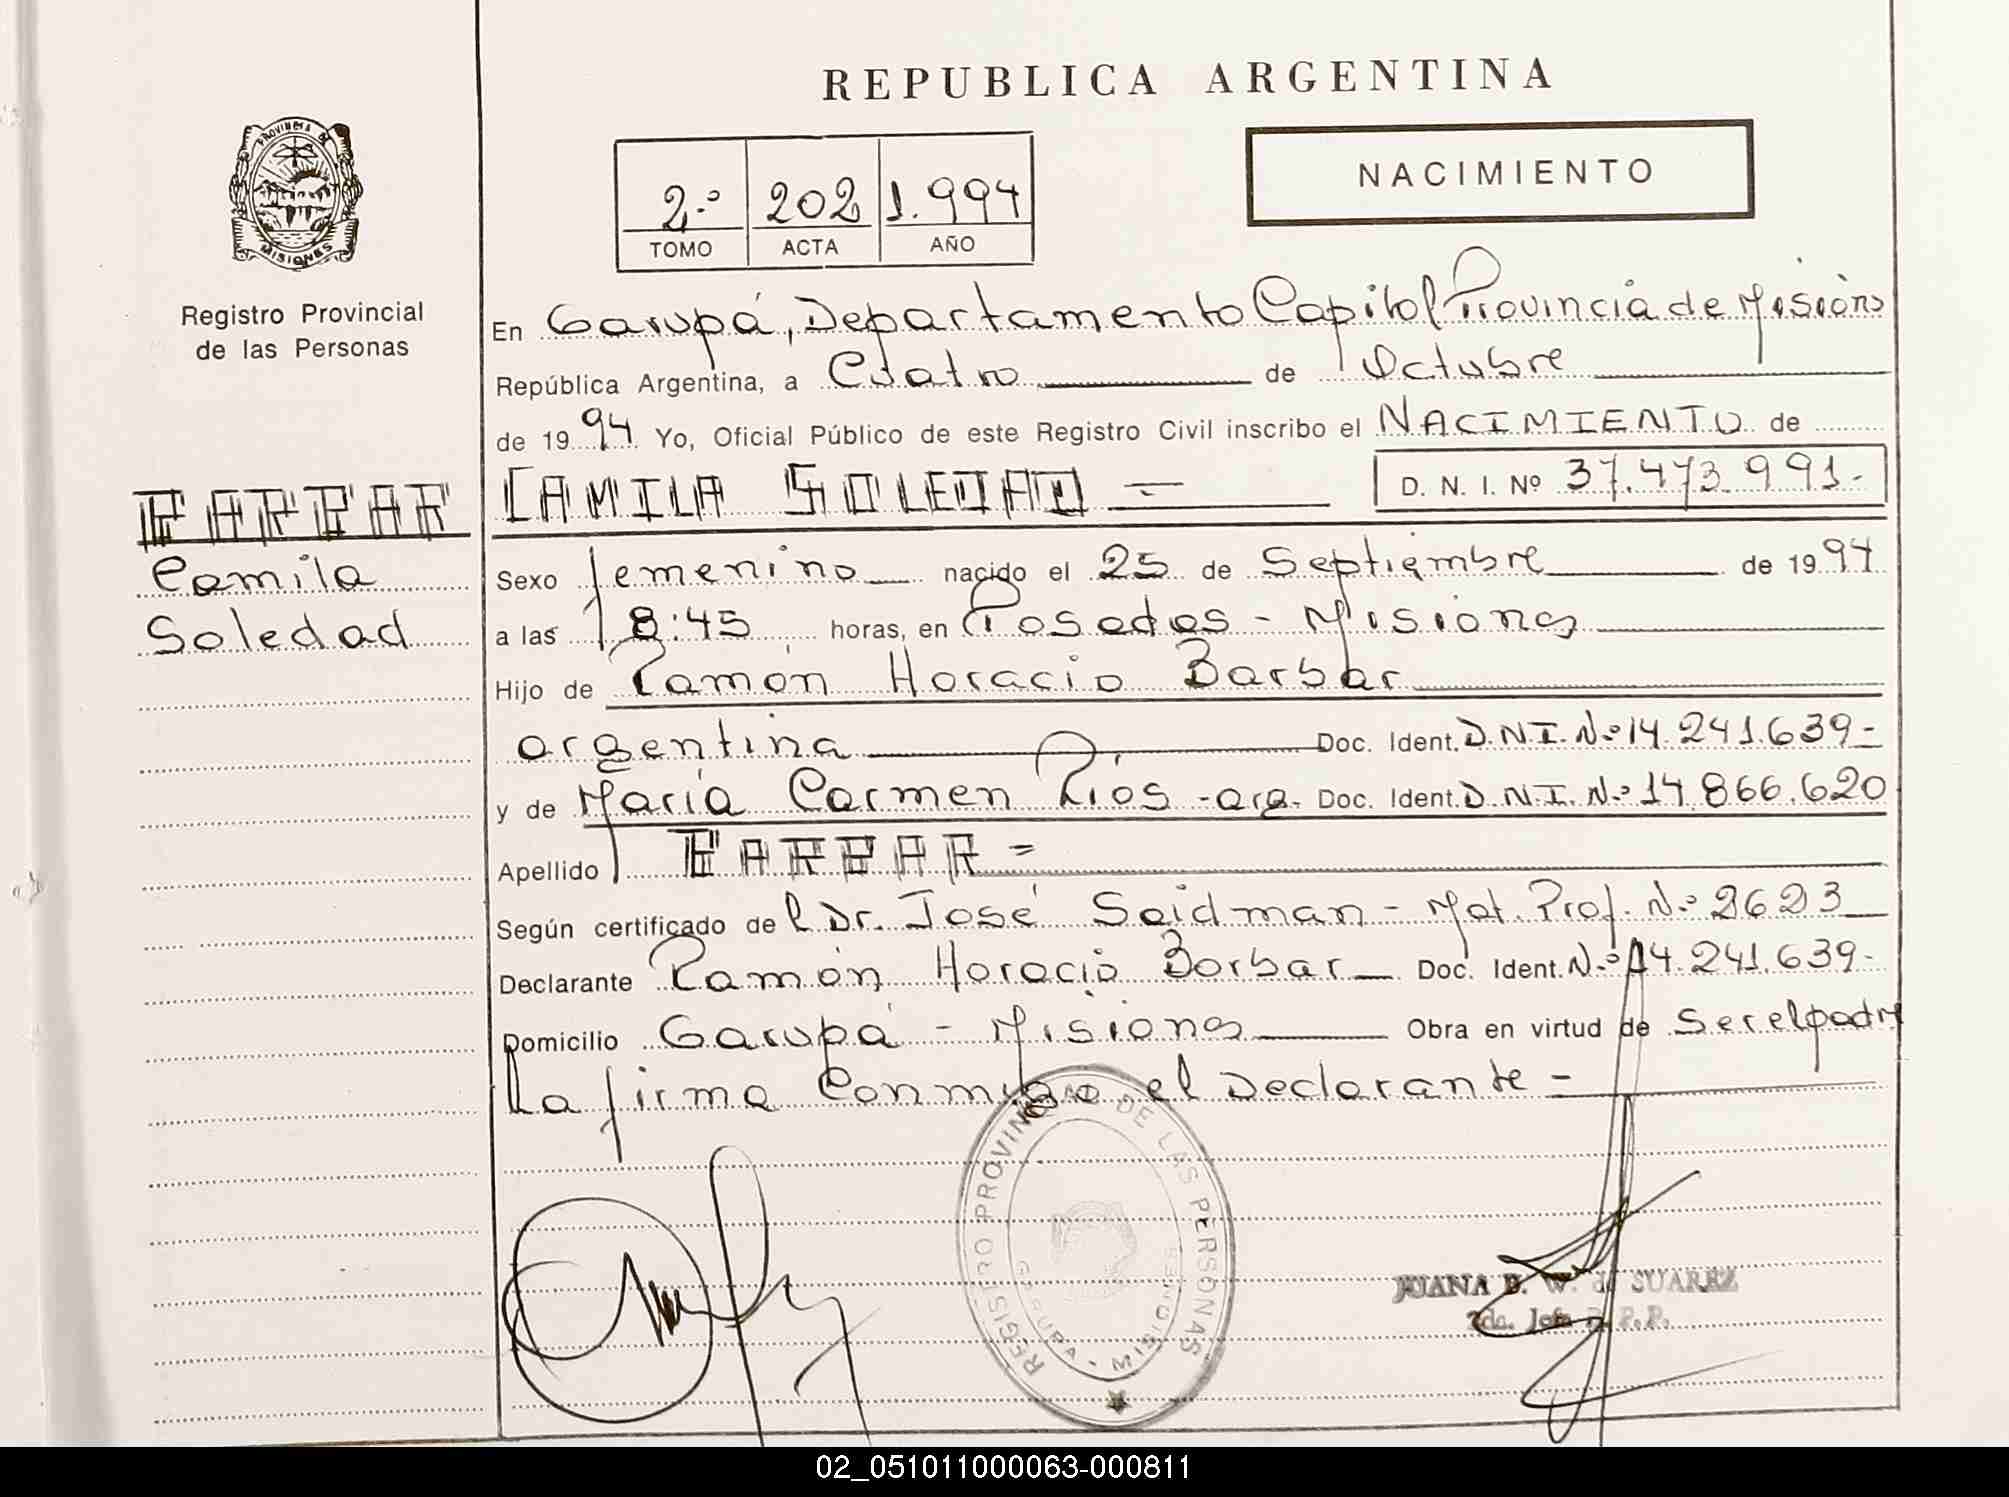 REPUBLICA ARGENTINA
PROVINCIA DE
MISIONES
Registro Provincial
de las Personas
2.º 202 1.994
TOMO ACTA AÑO
NACIMIENTO
En Garupá, Departamento Capital Provincia de Misiones
República Argentina, a Cuatro de Octubre
de 1994 Yo, Oficial Público de este Registro Civil inscribo el NACIMIENTO de
BARBAR
Camila
Soledad
CAMILA SOLEDAD = D. N. I. Nº 37.473.991.-
Sexo femenino nacido el 25 de Septiembre de 1994
a las 18:45 horas, en Posadas - Misiones
Hijo de Ramón Horacio Barbar
argentina Doc. Ident. D.N.I. N.º 14.241.639-
y de María Carmen Ríos - arg. Doc. Ident. D.N.I. N.º 14.866.620
Apellido BARBAR =
Según certificado de l Dr. José Seidman - Mat. Prof. N.º 2623
Declarante Ramón Horacio Barbar Doc. Ident. N.º 14.241.639-
Domicilio Garupá - Misiones Obra en virtud de Ser el padre
La firma Conmigo el Declarante =
REGISTRO PROVINCIAL DE LAS PERSONAS
GARUPA - MISIONES
JUANA B. W. de SUAREZ
2da. Jefa R. P. P.
02_051011000063-000811